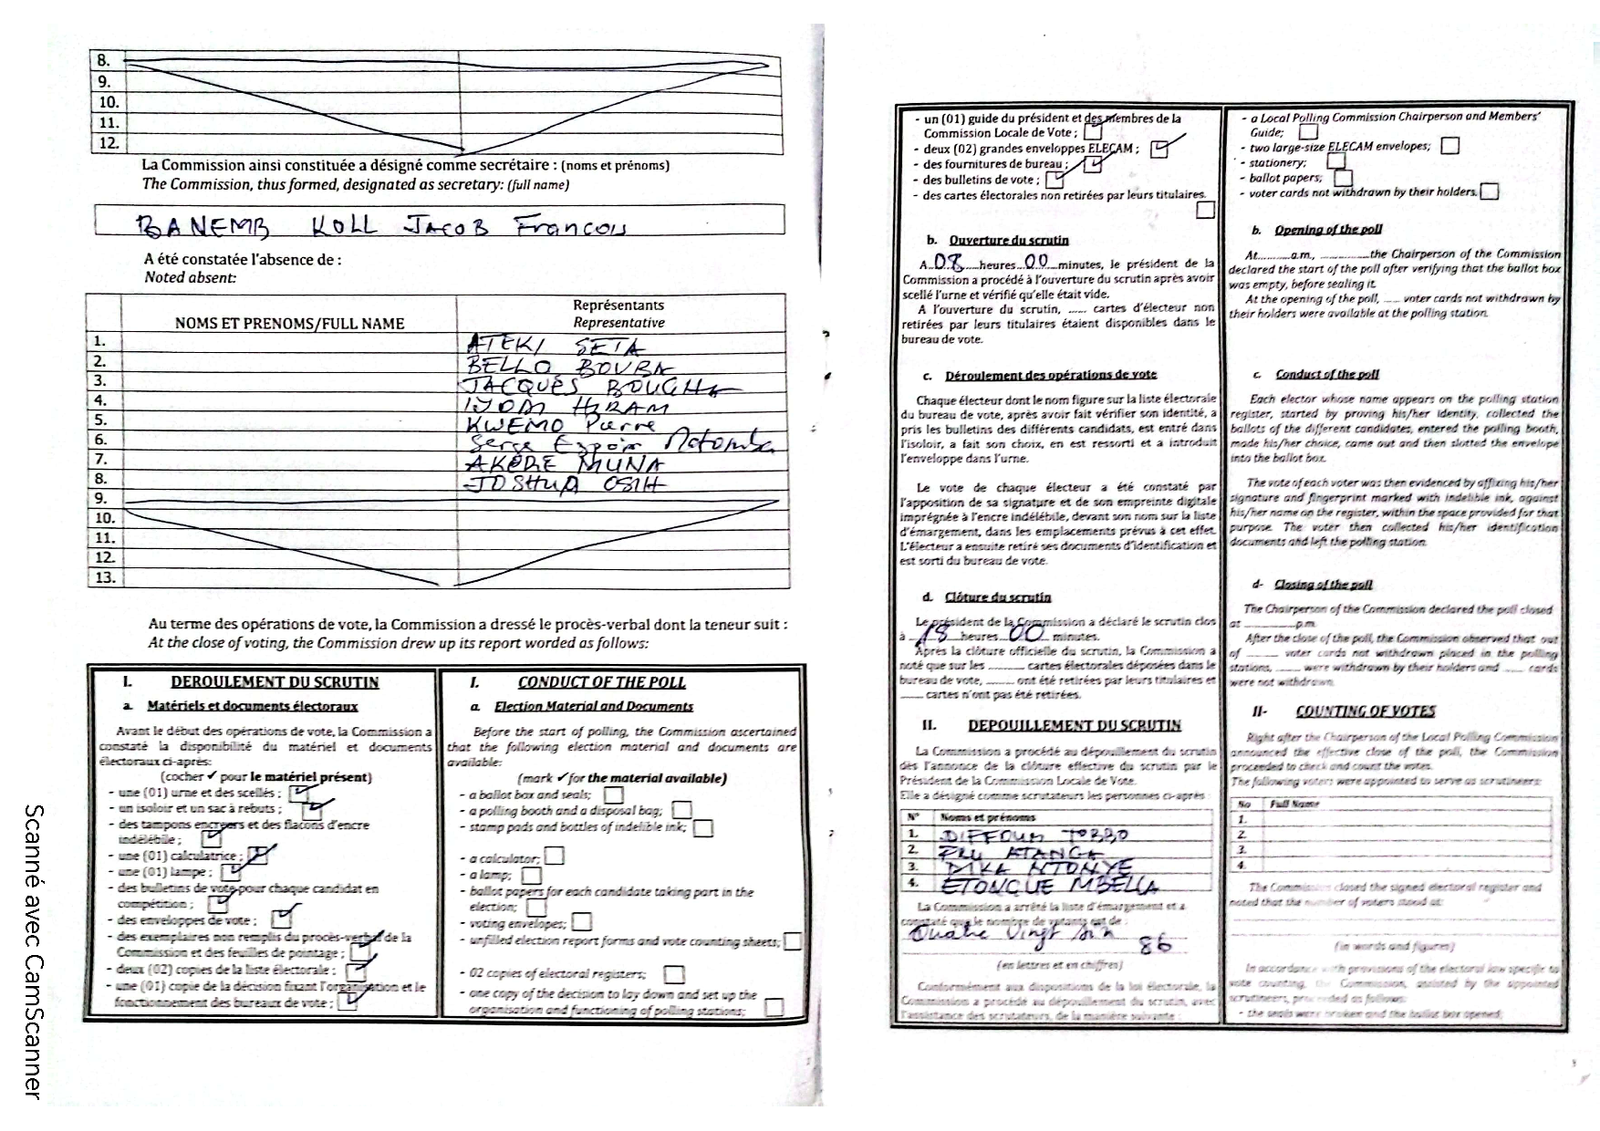 8.
9.
10.
11.
12.
La Commission ainsi constituée a désigné comme secrétaire : (noms et prénoms)
The Commission, thus formed, designated as secretary: (full name)
BANEMB KOLL JACOB Francois
A été constatée l'absence de :
Noted absent:
NOMS ET PRENOMS/FULL NAME
Représentants
Representative
1. ATEKI SETA
2. BELLO BOUBA
3. JACQUES BOUGHA
4. IYODI HIRAM
5. KWEMO Pierre
6. Serge Espoir Matomba
7. AKERE MUNA
8. JOSHUA OSIH
9.
10.
11.
12.
13.
Au terme des opérations de vote, la Commission a dressé le procès-verbal dont la teneur suit :
At the close of voting, the Commission drew up its report worded as follows:
I. DEROULEMENT DU SCRUTIN
a. Matériels et documents électoraux
Avant le début des opérations de vote, la Commission a
constaté la disponibilité du matériel et documents
électoraux ci-après:
(cocher ✓ pour le matériel présent)
- une (01) urne et des scellés ;
- un isoloir et un sac à rebuts ;
- des tampons encreurs et des flacons d'encre
indélébile ;
- une (01) calculatrice ;
- une (01) lampe ;
- des bulletins de vote pour chaque candidat en
compétition ;
- des enveloppes de vote ;
- des exemplaires non remplis du procès-verbal de la
Commission et des feuilles de pointage ;
- deux (02) copies de la liste électorale ;
- une (01) copie de la décision fixant l'organisation et le
fonctionnement des bureaux de vote ;
I. CONDUCT OF THE POLL
a. Election Material and Documents
Before the start of polling, the Commission ascertained
that the following election material and documents are
available:
(mark ✓ for the material available)
- a ballot box and seals;
- a polling booth and a disposal bag;
- stamp pads and bottles of indelible ink;
- a calculator;
- a lamp;
- ballot papers for each candidate taking part in the
election;
- voting envelopes;
- unfilled election report forms and vote counting sheets;
- 02 copies of electoral registers;
- one copy of the decision to lay down and set up the
organisation and functioning of polling stations;
- un (01) guide du président et des membres de la
Commission Locale de Vote ;
- deux (02) grandes enveloppes ELECAM ;
- des fournitures de bureau ;
- des bulletins de vote ;
- des cartes électorales non retirées par leurs titulaires.
b. Ouverture du scrutin
A 08 heures 00 minutes, le président de la
Commission a procédé à l'ouverture du scrutin après avoir
scellé l'urne et vérifié qu'elle était vide.
A l'ouverture du scrutin, ...... cartes d'électeur non
retirées par leurs titulaires étaient disponibles dans le
bureau de vote.
c. Déroulement des opérations de vote
Chaque électeur dont le nom figure sur la liste électorale
du bureau de vote, après avoir fait vérifier son identité, a
pris les bulletins des différents candidats, est entré dans
l'isoloir, a fait son choix, en est ressorti et a introduit
l'enveloppe dans l'urne.
Le vote de chaque électeur a été constaté par
l'apposition de sa signature et de son empreinte digitale
imprégnée à l'encre indélébile, devant son nom sur la liste
d'émargement, dans les emplacements prévus à cet effet.
L'électeur a ensuite retiré ses documents d'identification et
est sorti du bureau de vote.
d. Clôture du scrutin
Le président de la Commission a déclaré le scrutin clos
à 18 heures 00 minutes.
Après la clôture officielle du scrutin, la Commission a
noté que sur les ......... cartes électorales déposées dans le
bureau de vote, ......... ont été retirées par leurs titulaires et
...... cartes n'ont pas été retirées.
II. DEPOUILLEMENT DU SCRUTIN
La Commission a procédé au dépouillement du scrutin
dès l'annonce de la clôture effective du scrutin par le
Président de la Commission Locale de Vote.
Elle a désigné comme scrutateurs les personnes ci-après :
N° Noms et prénoms
1. TOBBO
2. ATANGA
3. DIKA NTONYE
4. ETONGUE MBELLA
La Commission a arrêté la liste d'émargement et a
constaté que le nombre de votants est de :
Quatre Vingt Six 86
(en lettres et en chiffres)
Conformément aux dispositions de la loi électorale, la
Commission a procédé au dépouillement du scrutin, avec
l'assistance des scrutateurs, de la manière suivante :
- a Local Polling Commission Chairperson and Members'
Guide;
- two large-size ELECAM envelopes;
- stationery;
- ballot papers;
- voter cards not withdrawn by their holders.
b. Opening of the poll
At..........a.m., ..............the Chairperson of the Commission
declared the start of the poll after verifying that the ballot box
was empty, before sealing it.
At the opening of the poll, ...... voter cards not withdrawn by
their holders were available at the polling station.
c. Conduct of the poll
Each elector whose name appears on the polling station
register, started by proving his/her identity, collected the
ballots of the different candidates, entered the polling booth,
made his/her choice, came out and then slotted the envelope
into the ballot box.
The vote of each voter was then evidenced by affixing his/her
signature and fingerprint marked with indelible ink, against
his/her name on the register, within the space provided for that
purpose. The voter then collected his/her identification
documents and left the polling station.
d- Closing of the poll
The Chairperson of the Commission declared the poll closed
at ............p.m.
After the close of the poll, the Commission observed that out
of ........ voter cards not withdrawn placed in the polling
stations, ...... were withdrawn by their holders and ...... cards
were not withdrawn.
II- COUNTING OF VOTES
Right after the Chairperson of the Local Polling Commission
announced the effective close of the poll, the Commission
proceeded to check and count the votes.
The following voters were appointed to serve as scrutineers:
No Full Name
1.
2.
3.
4.
The Commission closed the signed electoral register and
noted that the number of voters stood at:
(in words and figures)
In accordance with provisions of the electoral law specific to
vote counting, the Commission, assisted by the appointed
scrutineers, proceeded as follows:
- the seals were broken and the ballot box opened;
Scanné avec CamScanner